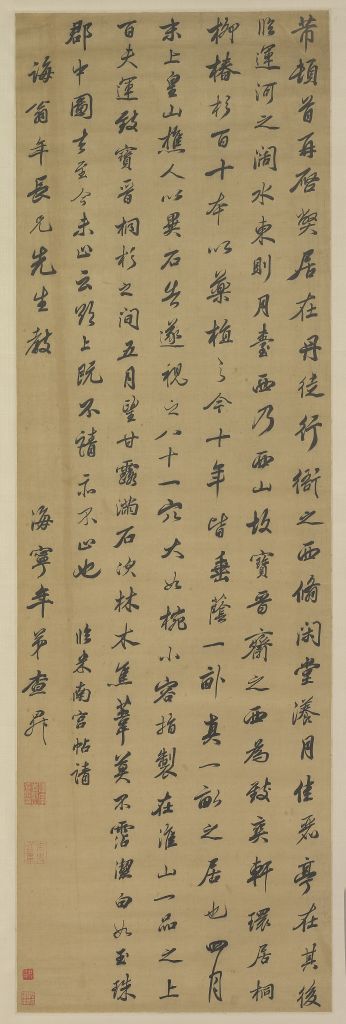 芾頓首再啓弊居在丹徒行衙之西脩閑堂漾月佳麗亭在其後
臨運河之闊水東則月臺西乃西山故寶晉齋之西為致爽軒環居桐
柳椿杉百十本以藥植之今十年皆垂蔭一畝真一畝之居也四月
末上皇山樵人以異石告遂視之八十一穴大如椀小容指製在淮山一品之上
百夫運致寶晉桐杉之間五月望甘露滿石次林木焦葦莫不霑潔白如玉珠
郡中圖去至今未止云欲上既不請亦不止也 臨米南宮帖請
海翁年長兄先生教 海寧年弟查昇